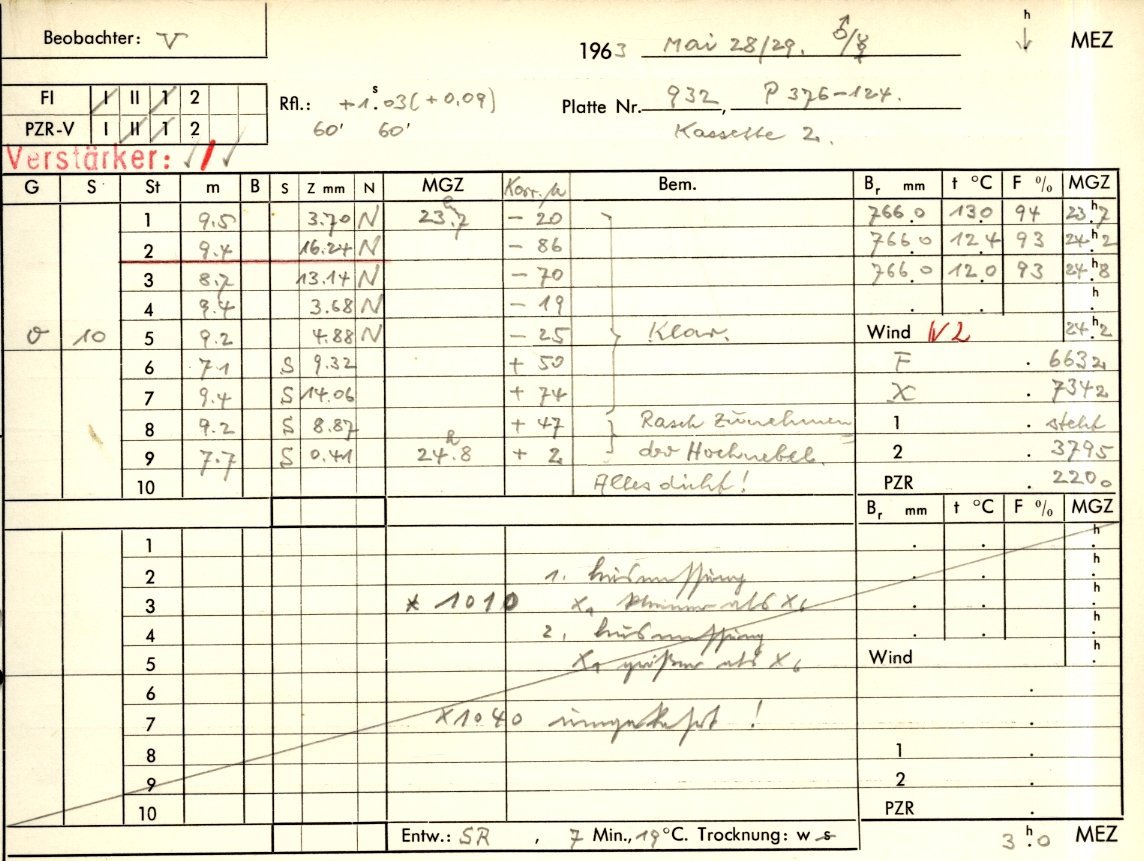 Beobachter: V
1963 Mai 28/29. h MEZ
FI I II 1 2
PZR-V I II 1 2
Rfl.: +1ˢ.03 (+0.09)
60' 60'
Platte Nr. 932, P 376-124.
Kassette 2.
Verstärker:
G S St m B S Z mm N MGZ Korr. μ Bem. Bᵣ mm t °C F % MGZ
1 9.5 3.70 N 23.7 - 20 766.0 13.0 94 23ʰ.7
2 9.4 16.24 N - 86 766.0 12.4 93 24ʰ.2
3 8.7 13.14 N - 70 766.0 12.0 93 24ʰ.8
4 9.4 3.68 N - 19 . . h .
σ 10 5 9.2 4.88 N - 25 Klar. Wind N 2 24ʰ.2
6 7.1 S 9.32 + 50 F . 6632
7 9.4 S 14.06 + 74 X . 7342
8 9.2 S 8.87 + 47 Rasch Zunehmen 1 . steht
9 7.7 S 0.41 24ʰ.8 + 2 der Hochnebel. 2 . 3795
10 Alles dicht! PZR . 2200
Bᵣ mm t °C F % MGZ
1 . . h .
2 1. . . h .
3 * 1010 X₁ als X₆ . . h .
4 2. . . h .
5 X₁ größer als X₆ Wind h .
6 .
7 * 1040 umgekehrt! .
8 1 .
9 2 .
10 PZR .
Entw.: SR , 7 Min., 19 °C. Trocknung: w s 3ʰ.0 MEZ